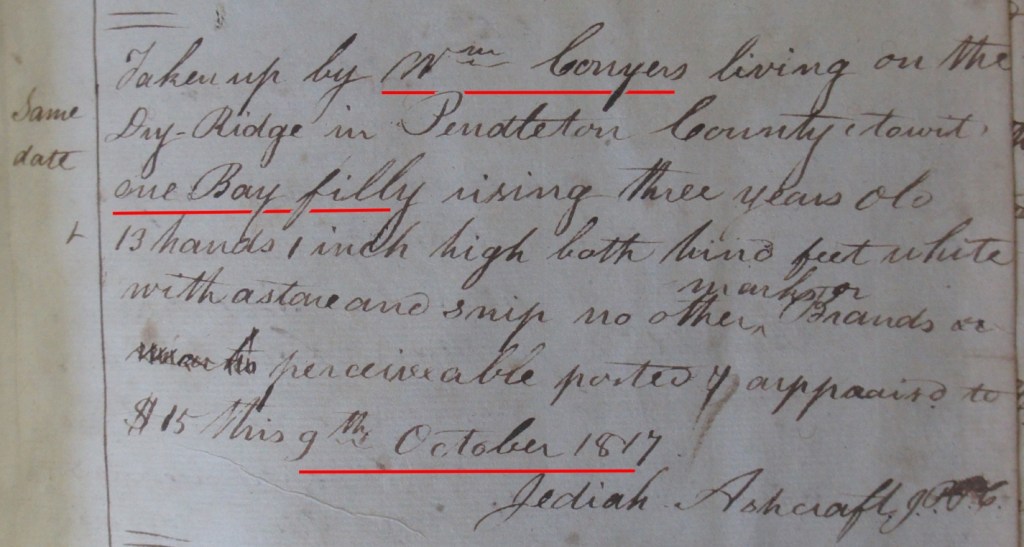 Taken up by Wm Conyers living on the
Same
Dry-Ridge in Pendleton County, towit
date
one Bay filly rising three years old
13 hands 1 inch high both hind feet white
marks or
with a stare and snip no other ^ Brands or
perceiveable posted & appraisd to
$15 this 9th October 1817
Jediah Ashcraft J.P.P.C.